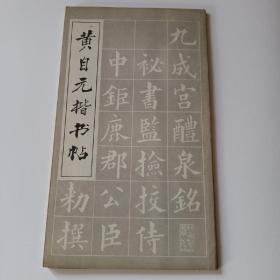 黄自元楷书帖
九成宫醴泉銘
祕書監撿挍侍
中鉅鹿郡公臣
勑撰